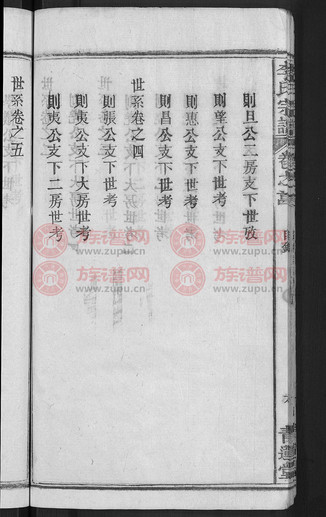 李氏宗譜
目錄
青蓮堂
則旦公二房支下世攷
則望公支下世考
則惠公支下世考
則昌公支下世考
世系卷之四
則張公支下世考
則夷公支下大房世考
則夷公支下二房世考
世系卷之五
族谱网
www.zupu.cn
族谱网
www.zupu.cn
族谱网
www.zupu.cn